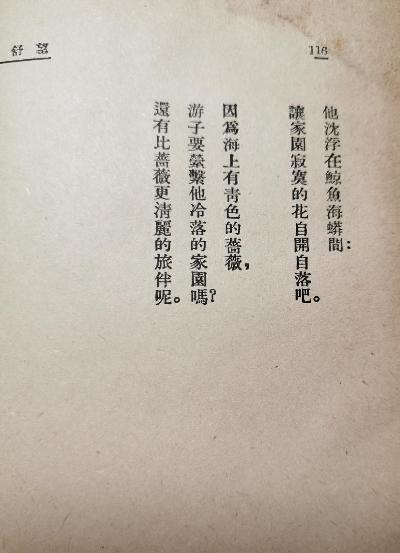 116
望舒
他沈浮在鯨魚海蟒間：
讓家園寂寞的花自開自落吧。
因爲海上有青色的薔薇，
游子要縈繫他冷落的家園嗎？
還有比薔薇更清麗的旅伴呢。